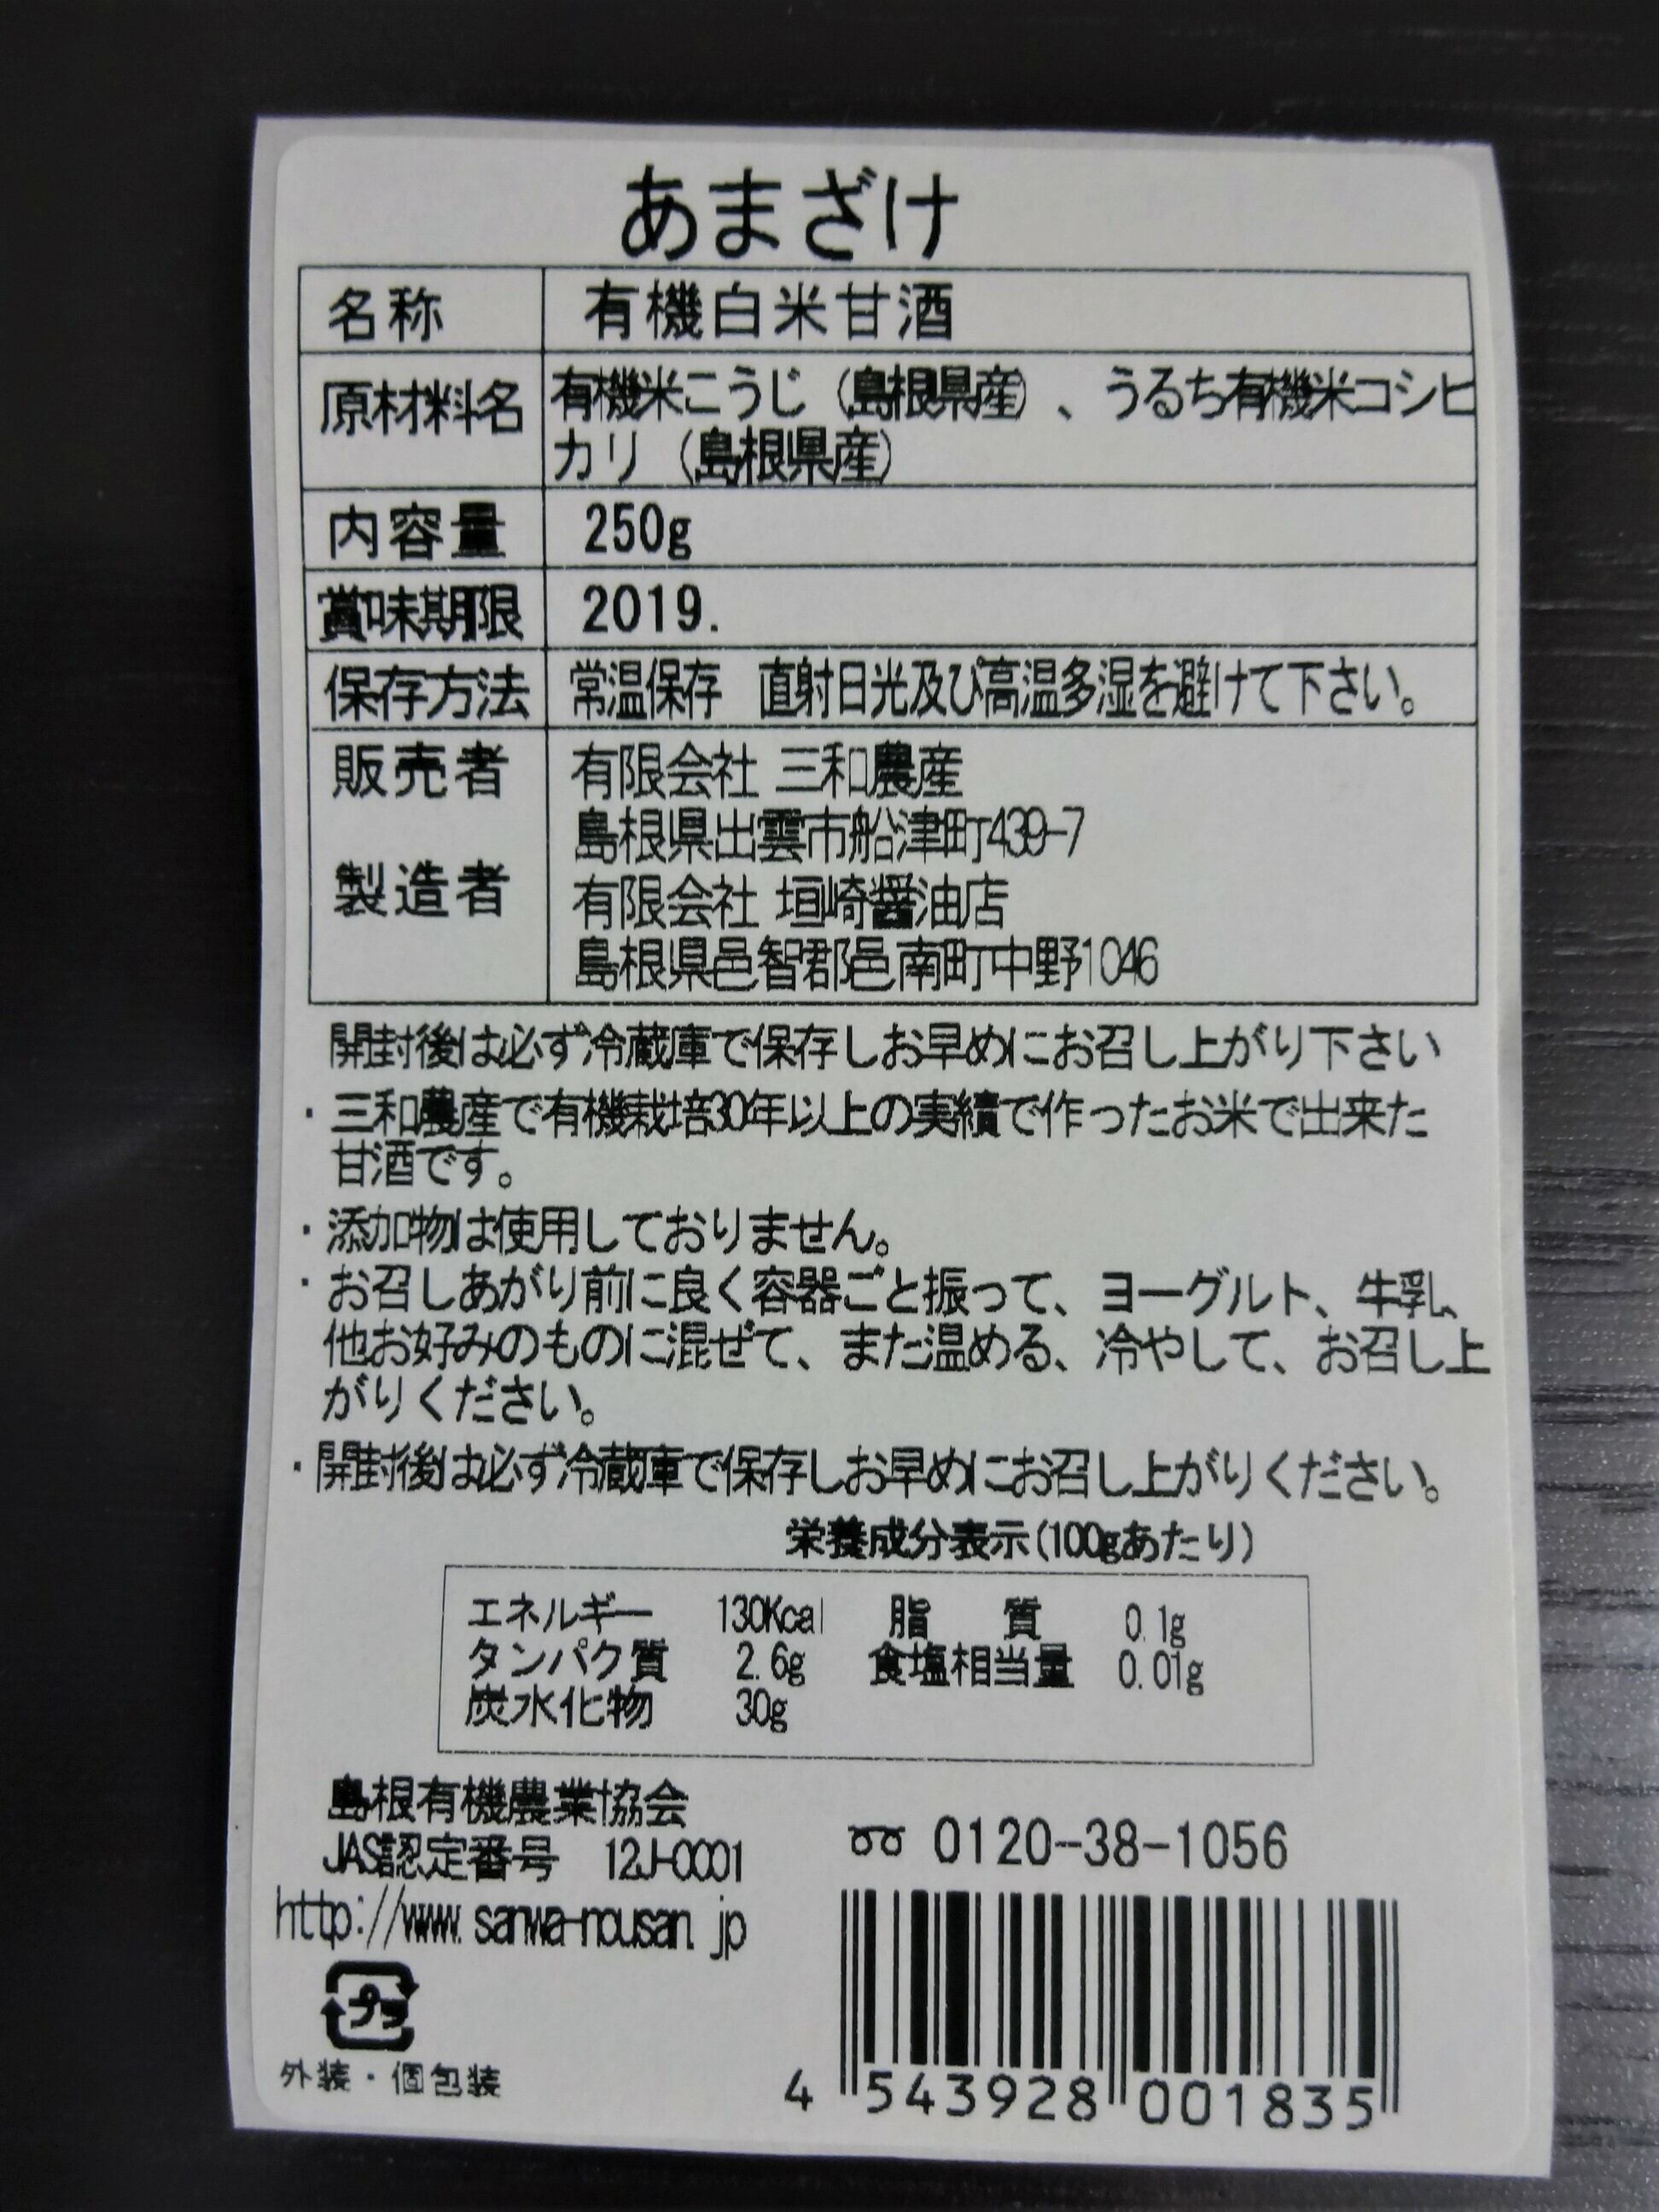 あまざけ
名称 有機白米甘酒
原材料名 有機米こうじ（島根県産）、うるち有機米コシヒ
カリ（島根県産）
内容量 250g
賞味期限 2019.
保存方法 常温保存 直射日光及び高温多湿を避けて下さい。
販売者 有限会社 三和農産
島根県出雲市船津町439-7
製造者 有限会社 垣崎醤油店
島根県邑智郡邑南町中野1046
開封後は必ず冷蔵庫で保存しお早めにお召し上がり下さい
・三和農産で有機栽培30年以上の実績で作ったお米で出来た
甘酒です。
・添加物は使用しておりません。
・お召しあがり前に良く容器ごと振って、ヨーグルト、牛乳、
他お好みのものに混ぜて、また温める、冷やして、お召し上
がりください。
・開封後は必ず冷蔵庫で保存しお早めにお召し上がりください。
栄養成分表示(100gあたり)
エネルギー 130Kcal 脂 質 0.1g
タンパク質 2.6g 食塩相当量 0.01g
炭水化物 30g
島根有機農業協会
JAS認定番号 12J-0001
0120-38-1056
http://www.sanwa-nousan.jp
プラ
外装・個包装
4 543928 001835